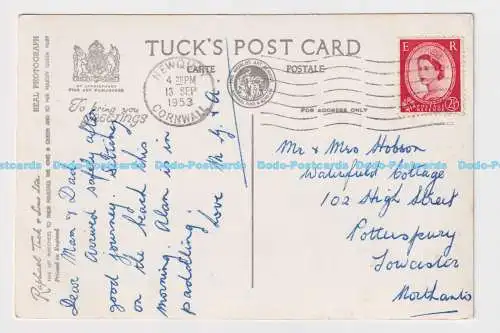 TUCK'S POST CARD
CARTE
POSTALE
FOR ADDRESS ONLY
REAL PHOTOGRAPH
BY APPOINTMENT
FINE ART PUBLISHERS
To bring you
Greetings
Raphael Tuck & Sons Ltd.
Printed in England
NEWQUAY
4 PM
13 SEP
1953
CORNWALL
E R
2½D
Dear Mam & Dad
Arrived safely after
good journey. Sitting
on the beach this
morning Alan is in
paddling
Love M. G. & A.
Mr & Mrs Hobson
Waterfield Cottage
102 High Street
Potterspury
Towcester
Northants
Dada-Postcards